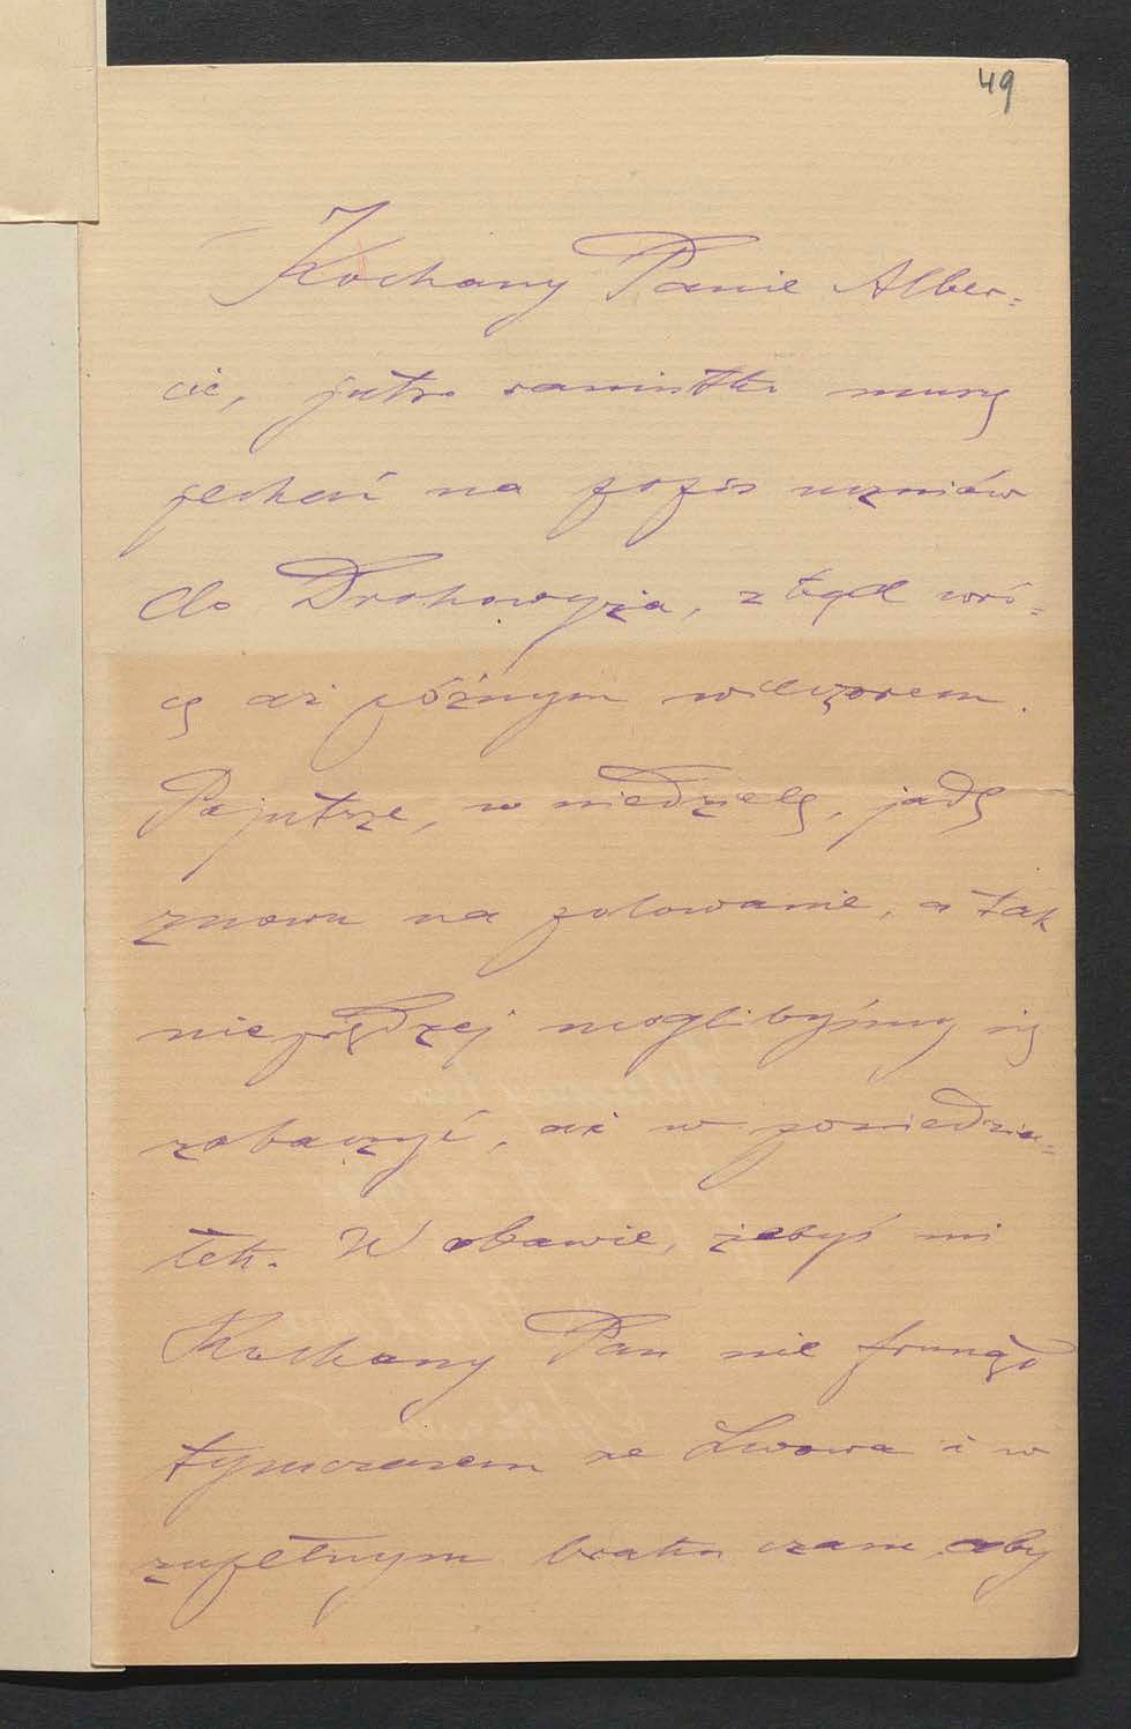 49
Kochany Panie Alber-
cie, jutro raniutko muszę
jechać na popis uczniów
do Drohowyża, z tąd wró-
cę aż późnym wieczorem.
Pojutrze, w niedzielę, jadę
znowu na polowanie, a tak
nieprędzej moglibyśmy się
zobaczyć, aż w poniedzia-
łek. W obawie, żebyś mi
Kochany Pan nie frunął
tymczasem ze Lwowa i w
zupełnym braku czasu, aby